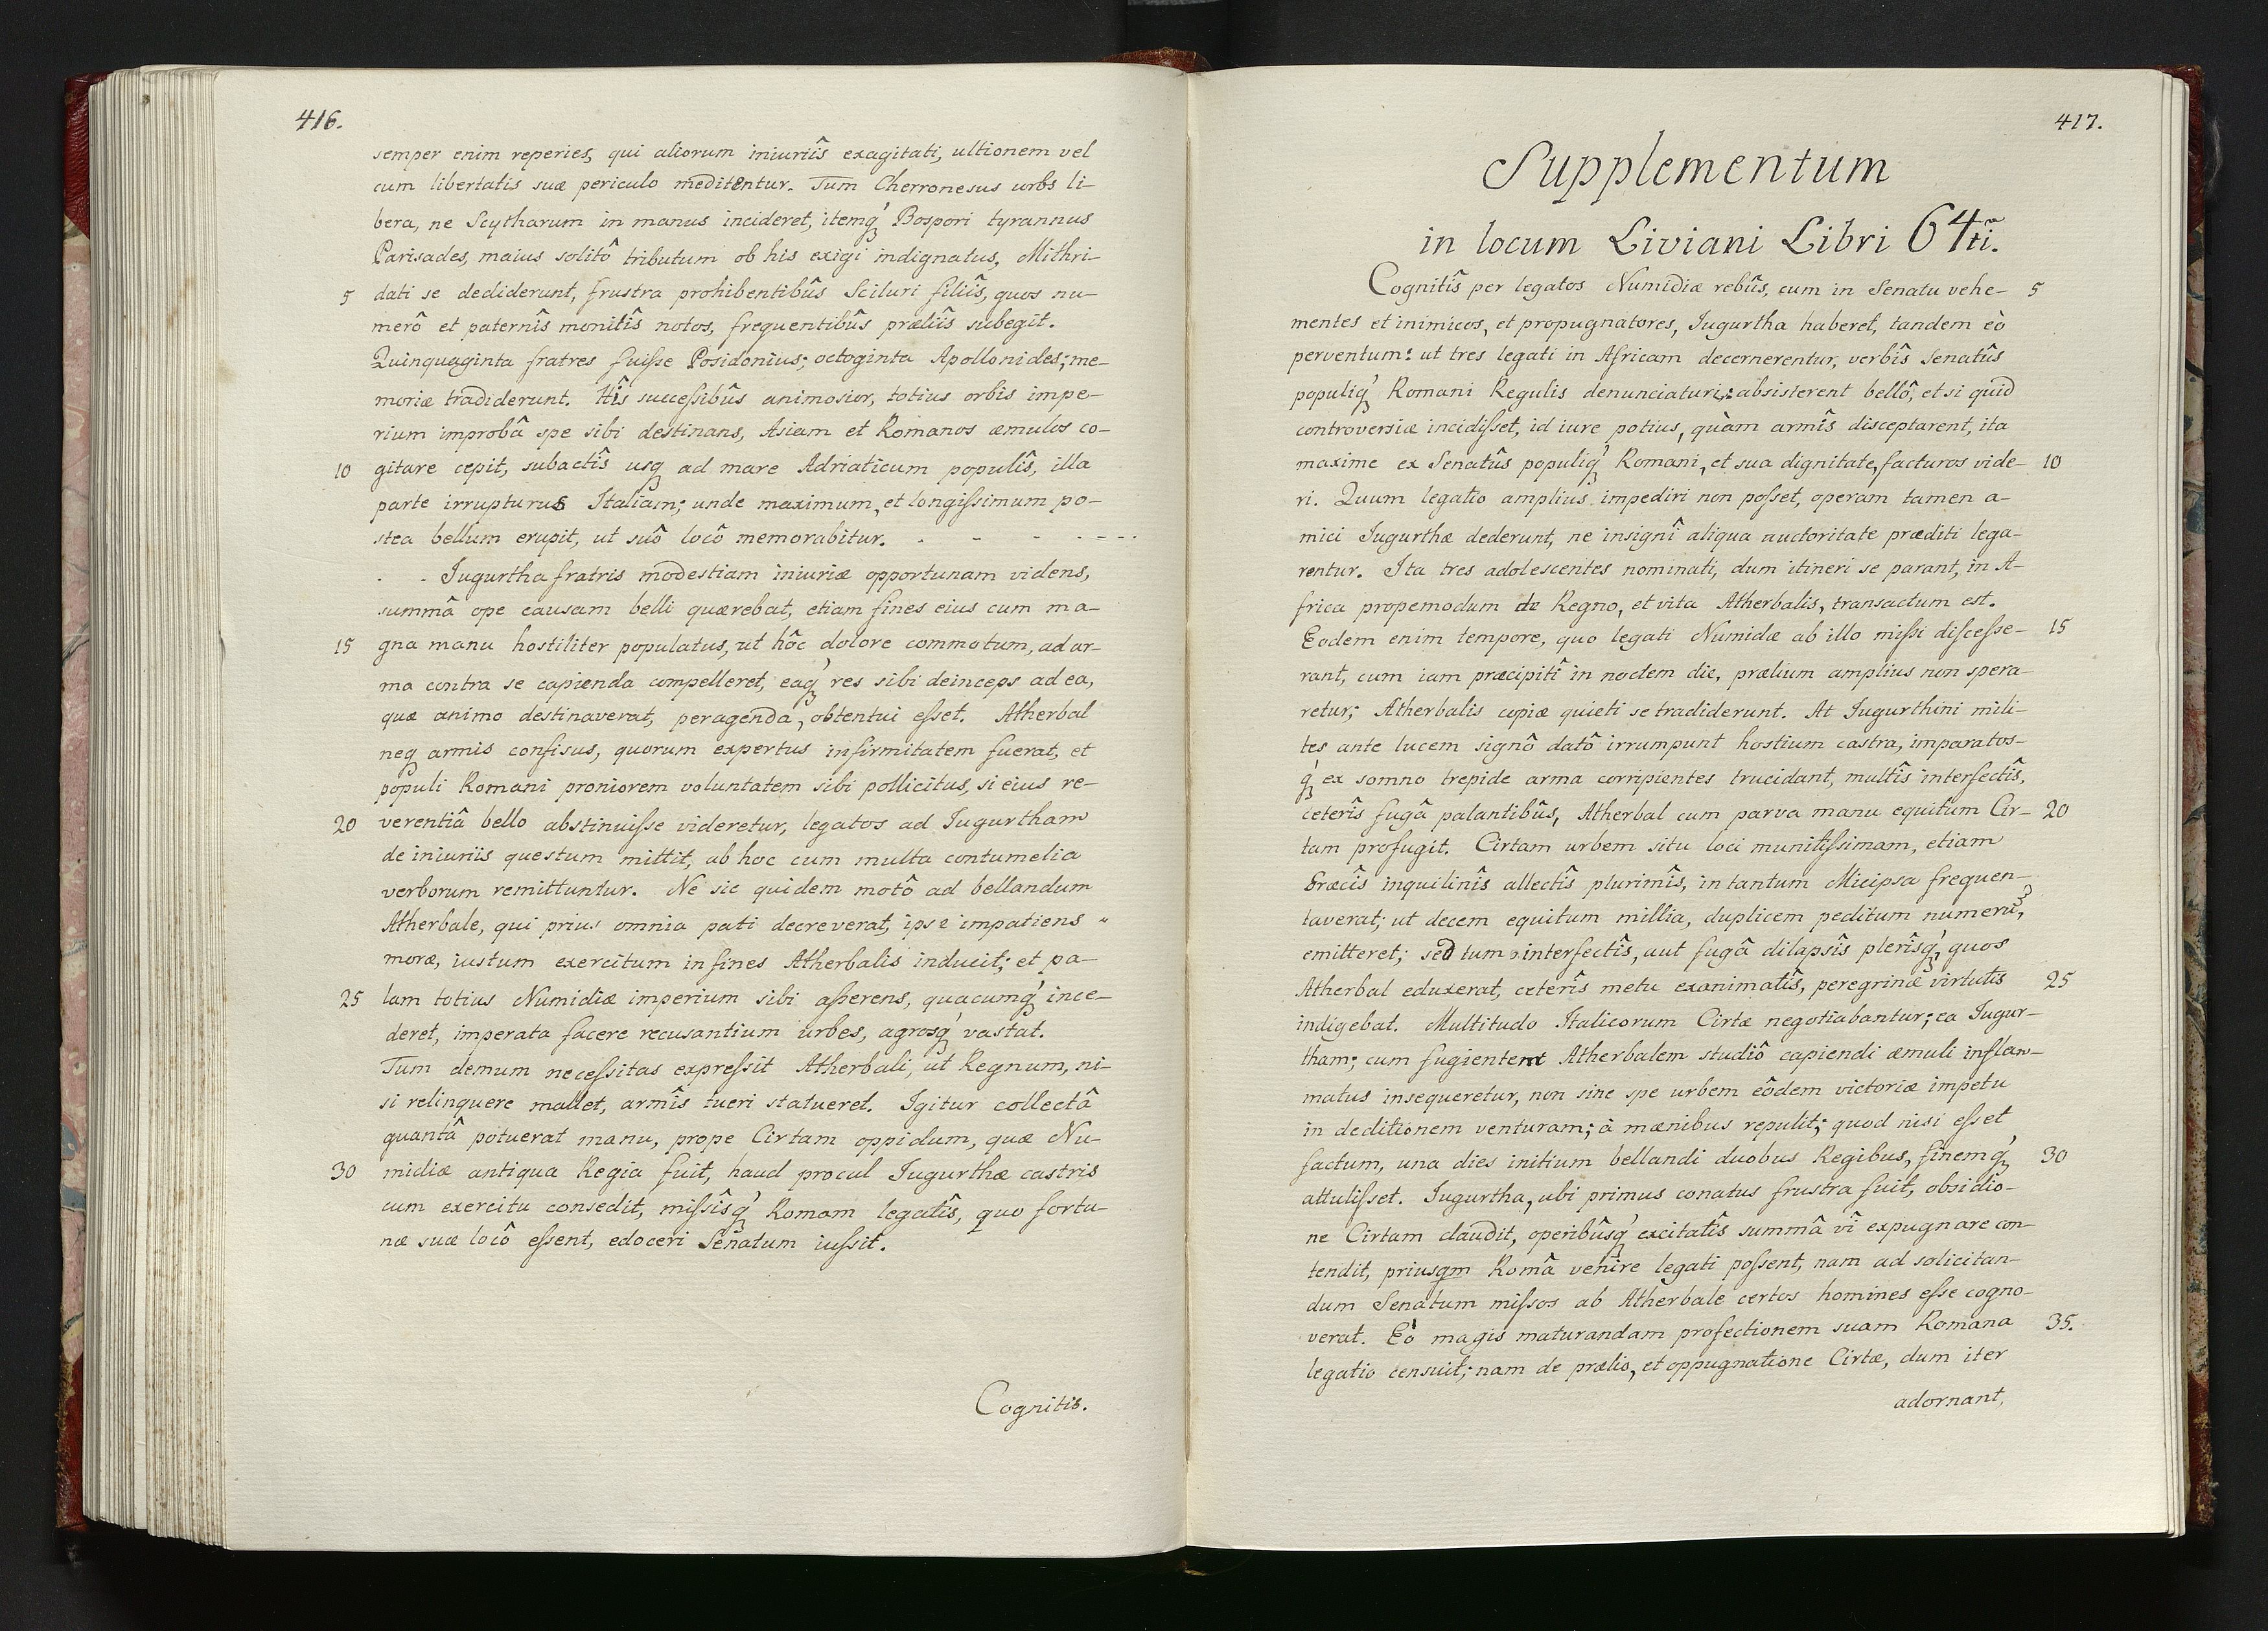 416.
semper enim reperies, qui aliorum iniuriîs exagitati, ultionem vel
cum libertatis suæ periculo meditentur. Tum Cherronesus urbs li-
bera, ne Scytharum in manus incideret, itemq́ Bospori tyrannus
Parisades, maius solitô tributum ob his exigi indignatus, Mithri-
5 dati se dediderunt, frustra prohibentibûs Sciluri filiîs, quos nu-
merô et paternîs monitîs notos, frequentibûs præliîs subegit.
Quinquaginta fratres fuiſse Posidonius; octoginta Apollonides; me-
moriæ tradiderunt. Hîs succeſsibûs animosior, totius orbis impe-
rium improbâ spe sibi destinans, Asiam et Romanos æmulos co-
10 gitare cepit, subactîs usq ad mare Adriaticum populîs, illa
parte irrupturus Italiam; unde maximum, et longiſsimum po-
stea bellum erupit, ut suô locô memorabitur. . - - . - - .
. . Iugurtha fratris modestiam iniuriæ opportunam videns,
summâ ope causam belli quærebat, etiam fines eius cum ma-
15 gna manu hostiliter populatus, ut hôc dolore commotum, ad ar-
ma contra se capienda compelleret, eaq́ res sibi deinceps ad ea,
quæ animo destinaverat, peragenda, obtentui eſset. Atherbal
neq armis confisus, quorum expertus infirmitatem fuerat, et
populi Romani proniorem voluntatem sibi pollicitus, si eius re-
20 verentiâ bello abstinuiſse videretur, legatos ad Iugurtham
de iniuriis questum mittit, ab hoc cum multa contumelia
verborum remittuntur. Ne sic quidem motô ad bellandum
Atherbale, qui prius omnia pati decreverat, ipse impatiens "
moræ, iustum exercitum in fines Atherbalis inducit; et pa-
25 lam totius Numidiæ imperium sibi aſserens, quacumq́ ince-
deret, imperata facere recusantium urbes, agrosq́ vastat.
Tum demum neceſsitas expreſsit Atherbali, ut Regnum, ni-
si relinquere mallet, armîs tueri statueret. Igitur collectâ
quantâ potuerat manu, prope Cirtam oppidum, quæ Nu-
30 midiæ antiqua Regia fuit, haud procul Iugurthæ castris
cum exercitu consedit, miſsîsq́ Romam legatîs, quo fortu-
næ suæ locô eſsent, edoceri Senatum iuſsit.
Cognitis.
417.
Supplementum
in locum Liviani Libri 64ti.
Cognitîs per legatos Numidiæ rebûs, cum in Senatu vehe- 5
mentes et inimicos, et propugnatores, Iugurtha haberet, tandem eò
perventum: ut tres legati in Africam decernerentur, verbîs Senatûs
populiq́ Romani Regulis denunciaturi: absisterent bellô, et si quid
controversiæ incidiſset, id iure potius, quàm armîs disceptarent, ita
maxime ex Senatûs populiq́ Romani, et sua dignitate, facturos vide- 10
ri. Quum legatio amplius impediri non poſset, operam tamen a-
mici Iugurthæ dederunt, ne insignî aliqua auctoritate præditi lega-
rentur. Ita tres adolescentes nominati, dum itineri se parant, in A-
frica propemodum de Regno, et vita Atherbalis, transactum est.
Eodem enim tempore, quo legati Numidæ ab illo miſsi diſceſse- 15
rant, cum iam præcipitî in noctem die, prælium amplius non spera-
retur; Atherbalis copiæ quieti se tradiderunt. At Iugurthini mili-
tes ante lucem signô datô irrumpunt hostium castra, imparatos-
q́ ex somno trepide arma corripientes trucidant, multîs interfectîs,
ceterîs fugâ palantibûs, Atherbal cum parva manu equitum Cir- 20
tam profugit. Cirtam urbem situ loci munitiſsimam, etiam
Græcîs inquilinîs allectîs plurimîs, in tantum Micipsa frequen-
taverat; ut decem equitum millia, duplicem peditum numerũ,
emitteret; sed tum interfectîs, aut fugâ dilapsîs plerîsq́, quos
Atherbal eduxerat, ceterîs metu exanimatîs, peregrinæ virtutis 25
indigebat. Multitudo Italicorum Cirtæ negotiabantur; ea Iugur-
tham; cum fugientem Atherbalem studiô capiendi æmuli inflam-
matus insequeretur, non sine spe urbem eôdem victoriæ impetu
in deditionem venturam; à mænibus repulit; quod nisi eſset
factum, una dies initium bellandi duobus Regibus, finemq́ 30
attuliſset. Iugurtha, ubi primus conatus frustra fuit, obsidio-
ne Cirtam claudit, operibûsq́ excitatîs summâ vî expugnare con-
tendit, priusqm Româ venire legati poſsent, nam ad solicitan-
dum Senatum miſsos ab Atherbale certos homines eſse cogno-
verat. Eò magis maturandam profectionem suam Romana 35.
legatio censuit; nam de prælio, et oppugnatione Cirtæ, dum iter
adornant,